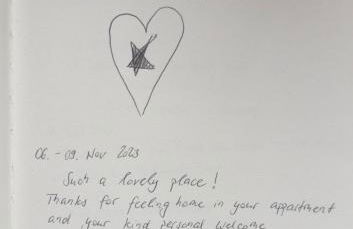 06. - 09. Nov 2023
Such a lovely place!
Thanks for feeling home in your appartment
and your kind personal welcome